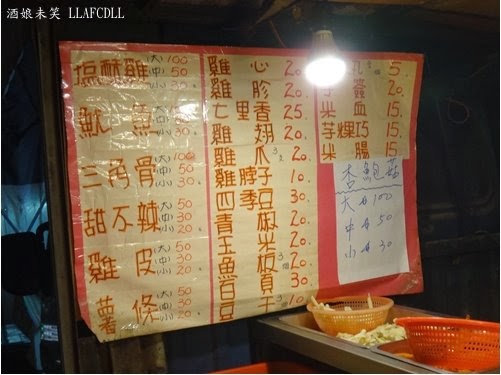 酒娘未笑 LLAFCDLL
塩酥雞 (大) 100 (中) 50 (小) 30
魷魚 (大) (中) 50 (小) 30
三角骨 (大) 100 (中) 50 (小) 30
甜不辣 (大) 50 (中) 30 (小) 20
雞皮 (大) 50 (中) 30 (小) 20
薯條 (大) 50 (中) 30 (小) 20
雞心 20.
雞胗 20.
七里香 25.
雞翅 20.
雞爪 3支 20.
雞脖子 10.
四季豆 30.
青椒 20.
玉米 20.
魚板 3個 20.
百頁 30.
豆干 3 10.
5.
20.
米血 15.
芋粿巧 15.
米腸 15.
杏鮑菇
大份100
中份50
小份30